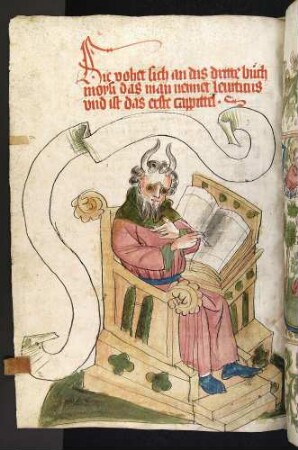 Hie vohet sich an das dritte buͦch
moysi das man nennet leuiticus
vnd ist das erste cappittel .